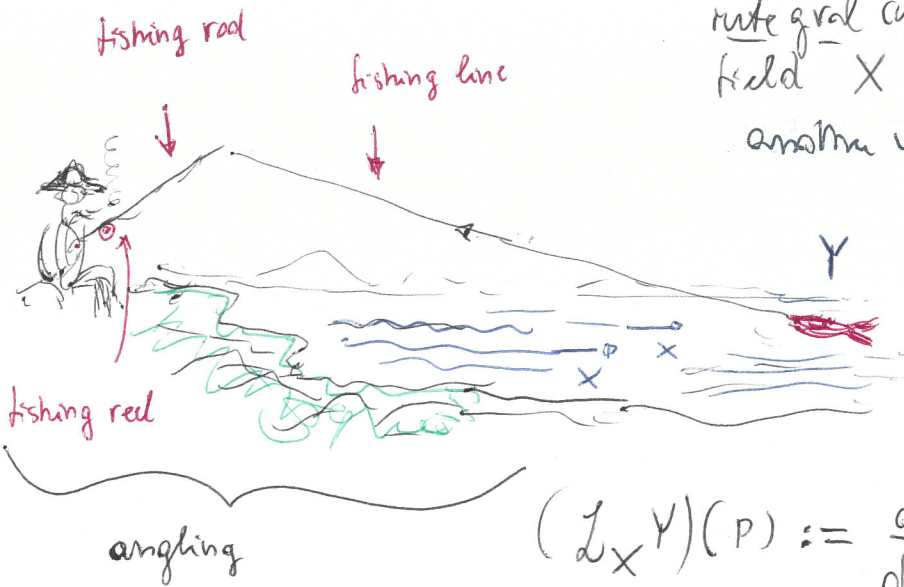 fishing rod
fishing line
integral
field X
another
Y
X
X
fishing reel
angling
(L_X Y)(p) :=